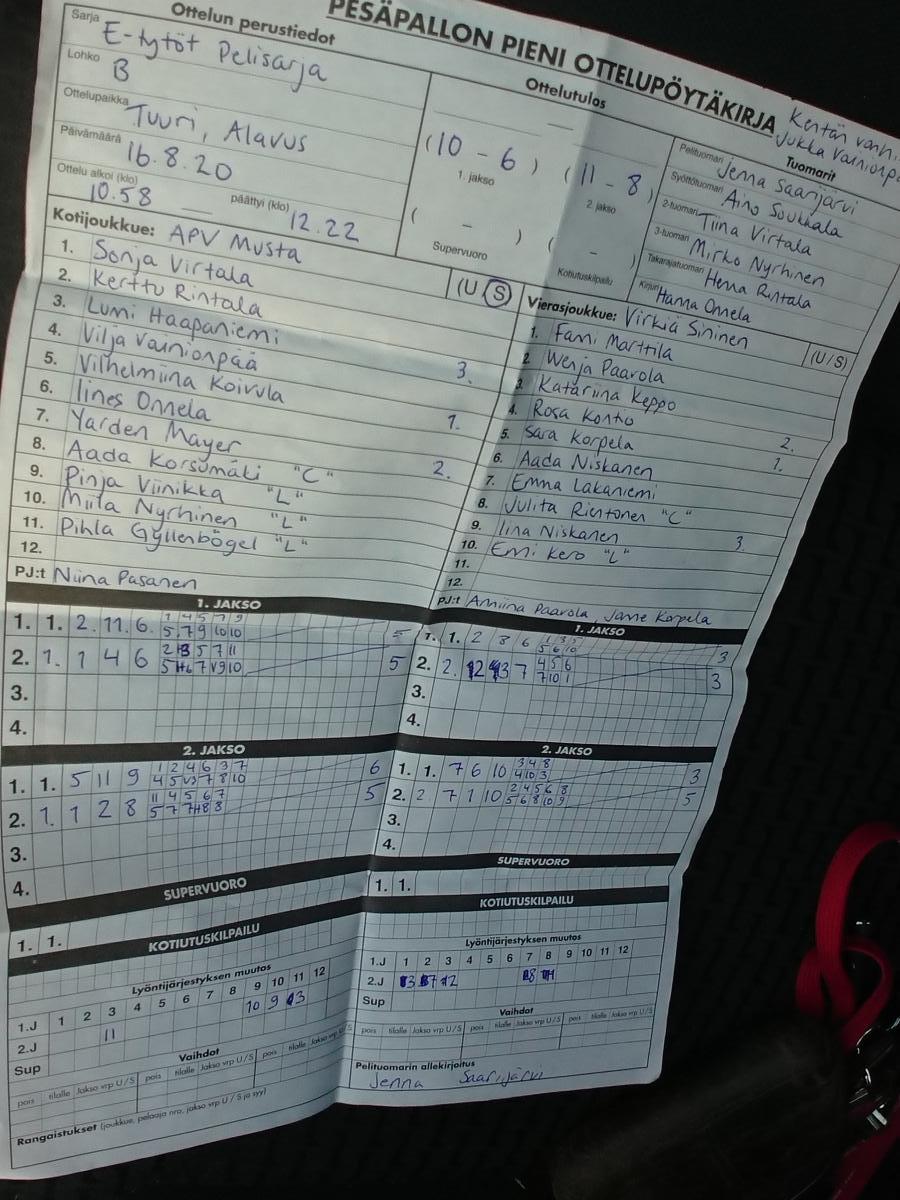 PESÄPALLON PIENI OTTELUPÖYTÄKIRJA
Kertän vanh.
Jukka Vainionp
Ottelun perustiedot
Sarja E-tytöt Pelisarja
Lohko B
Ottelupaikka Tuuri, Alavus
Päivämäärä 16.8.20
Ottelu alkoi (klo) 10.58 päättyi (klo) 12.22
Ottelutulos
(10 - 6) (11 - 8)
1. jakso 2. jakso
( - ) ( - )
Supervuoro Kotiutuskilpailu
Tuomarit
Pelituomari Jenna Saarijärvi
Syöttötuomari Aino Soukkala
2-tuomari Tiina Virtala
3-tuomari Mirko Nyrhinen
Takarajatuomari Henna Rintala
Kirjuri Hanna Onnela
Kotijoukkue: APV Musta (U S)
1. Sonja Virtala
2. Kerttu Rintala
3. Lumi Haapaniemi
4. Vilja Vainionpää 3.
5. Vilhelmiina Koivula
6. Iines Onnela 1.
7. Yarden Mayer
8. Aada Korsumäki "C" 2.
9. Pinja Viinikka "L"
10. Miila Nyrhinen "L"
11. Pihla Gyllenbögel "L"
12.
PJ:t Niina Pasanen
Vierasjoukkue: Virkiä Sininen (U/S)
1. Fami Marttila
2. Wenja Paarola
3. Katariina Keppo
4. Rosa Kontio
5. Sara Korpela 2.
6. Aada Niskanen 1.
7. Emma Lakaniemi
8. Julita Rientonen "C"
9. Iina Niskanen 3.
10. Emi Kero "L"
11.
12.
PJ:t Anniina Paarola, Janne Korpela
1. JAKSO
1. 1. 2. 11. 6. 1 4 5 7 9 5
5 7 9 10 10
2. 1. 1 4 6 5
3.
4.
1. JAKSO
1. 1. 2 8 6 1 3 5 3
5 6 10
2. 2. 7 4 5 6 3
7 10 1
3.
4.
2. JAKSO
1. 1. 5 11 9 1 2 4 6 3 7 6
2. 1. 1 2 8 11 4 5 6 7 5
3.
4.
2. JAKSO
1. 1. 7 6 10 3 4 8 3
4 10 3
2. 2 7 1 10 2 4 5 6 8 5
5 6 8 10 9
3.
4.
SUPERVUORO
1. 1.
SUPERVUORO
1. 1.
KOTIUTUSKILPAILU
Lyöntijärjestyksen muutos
1 2 3 4 5 6 7 8 9 10 11 12
1.J 11 10 9
2.J
Sup
Vaihdot
pois tilalle Jakso vrp U/S pois tilalle Jakso vrp U/S pois tilalle Jakso vrp U/S
Rangaistukset (joukkue, pelaaja nro, jakso vrp U / S ja syy)
KOTIUTUSKILPAILU
Lyöntijärjestyksen muutos
1.J 1 2 3 4 5 6 7 8 9 10 11 12
2.J
Sup
Vaihdot
pois tilalle Jakso vrp U/S pois tilalle Jakso vrp U/S pois tilalle Jakso vrp U/S
Pelituomarin allekirjoitus
Jenna Saarijärvi